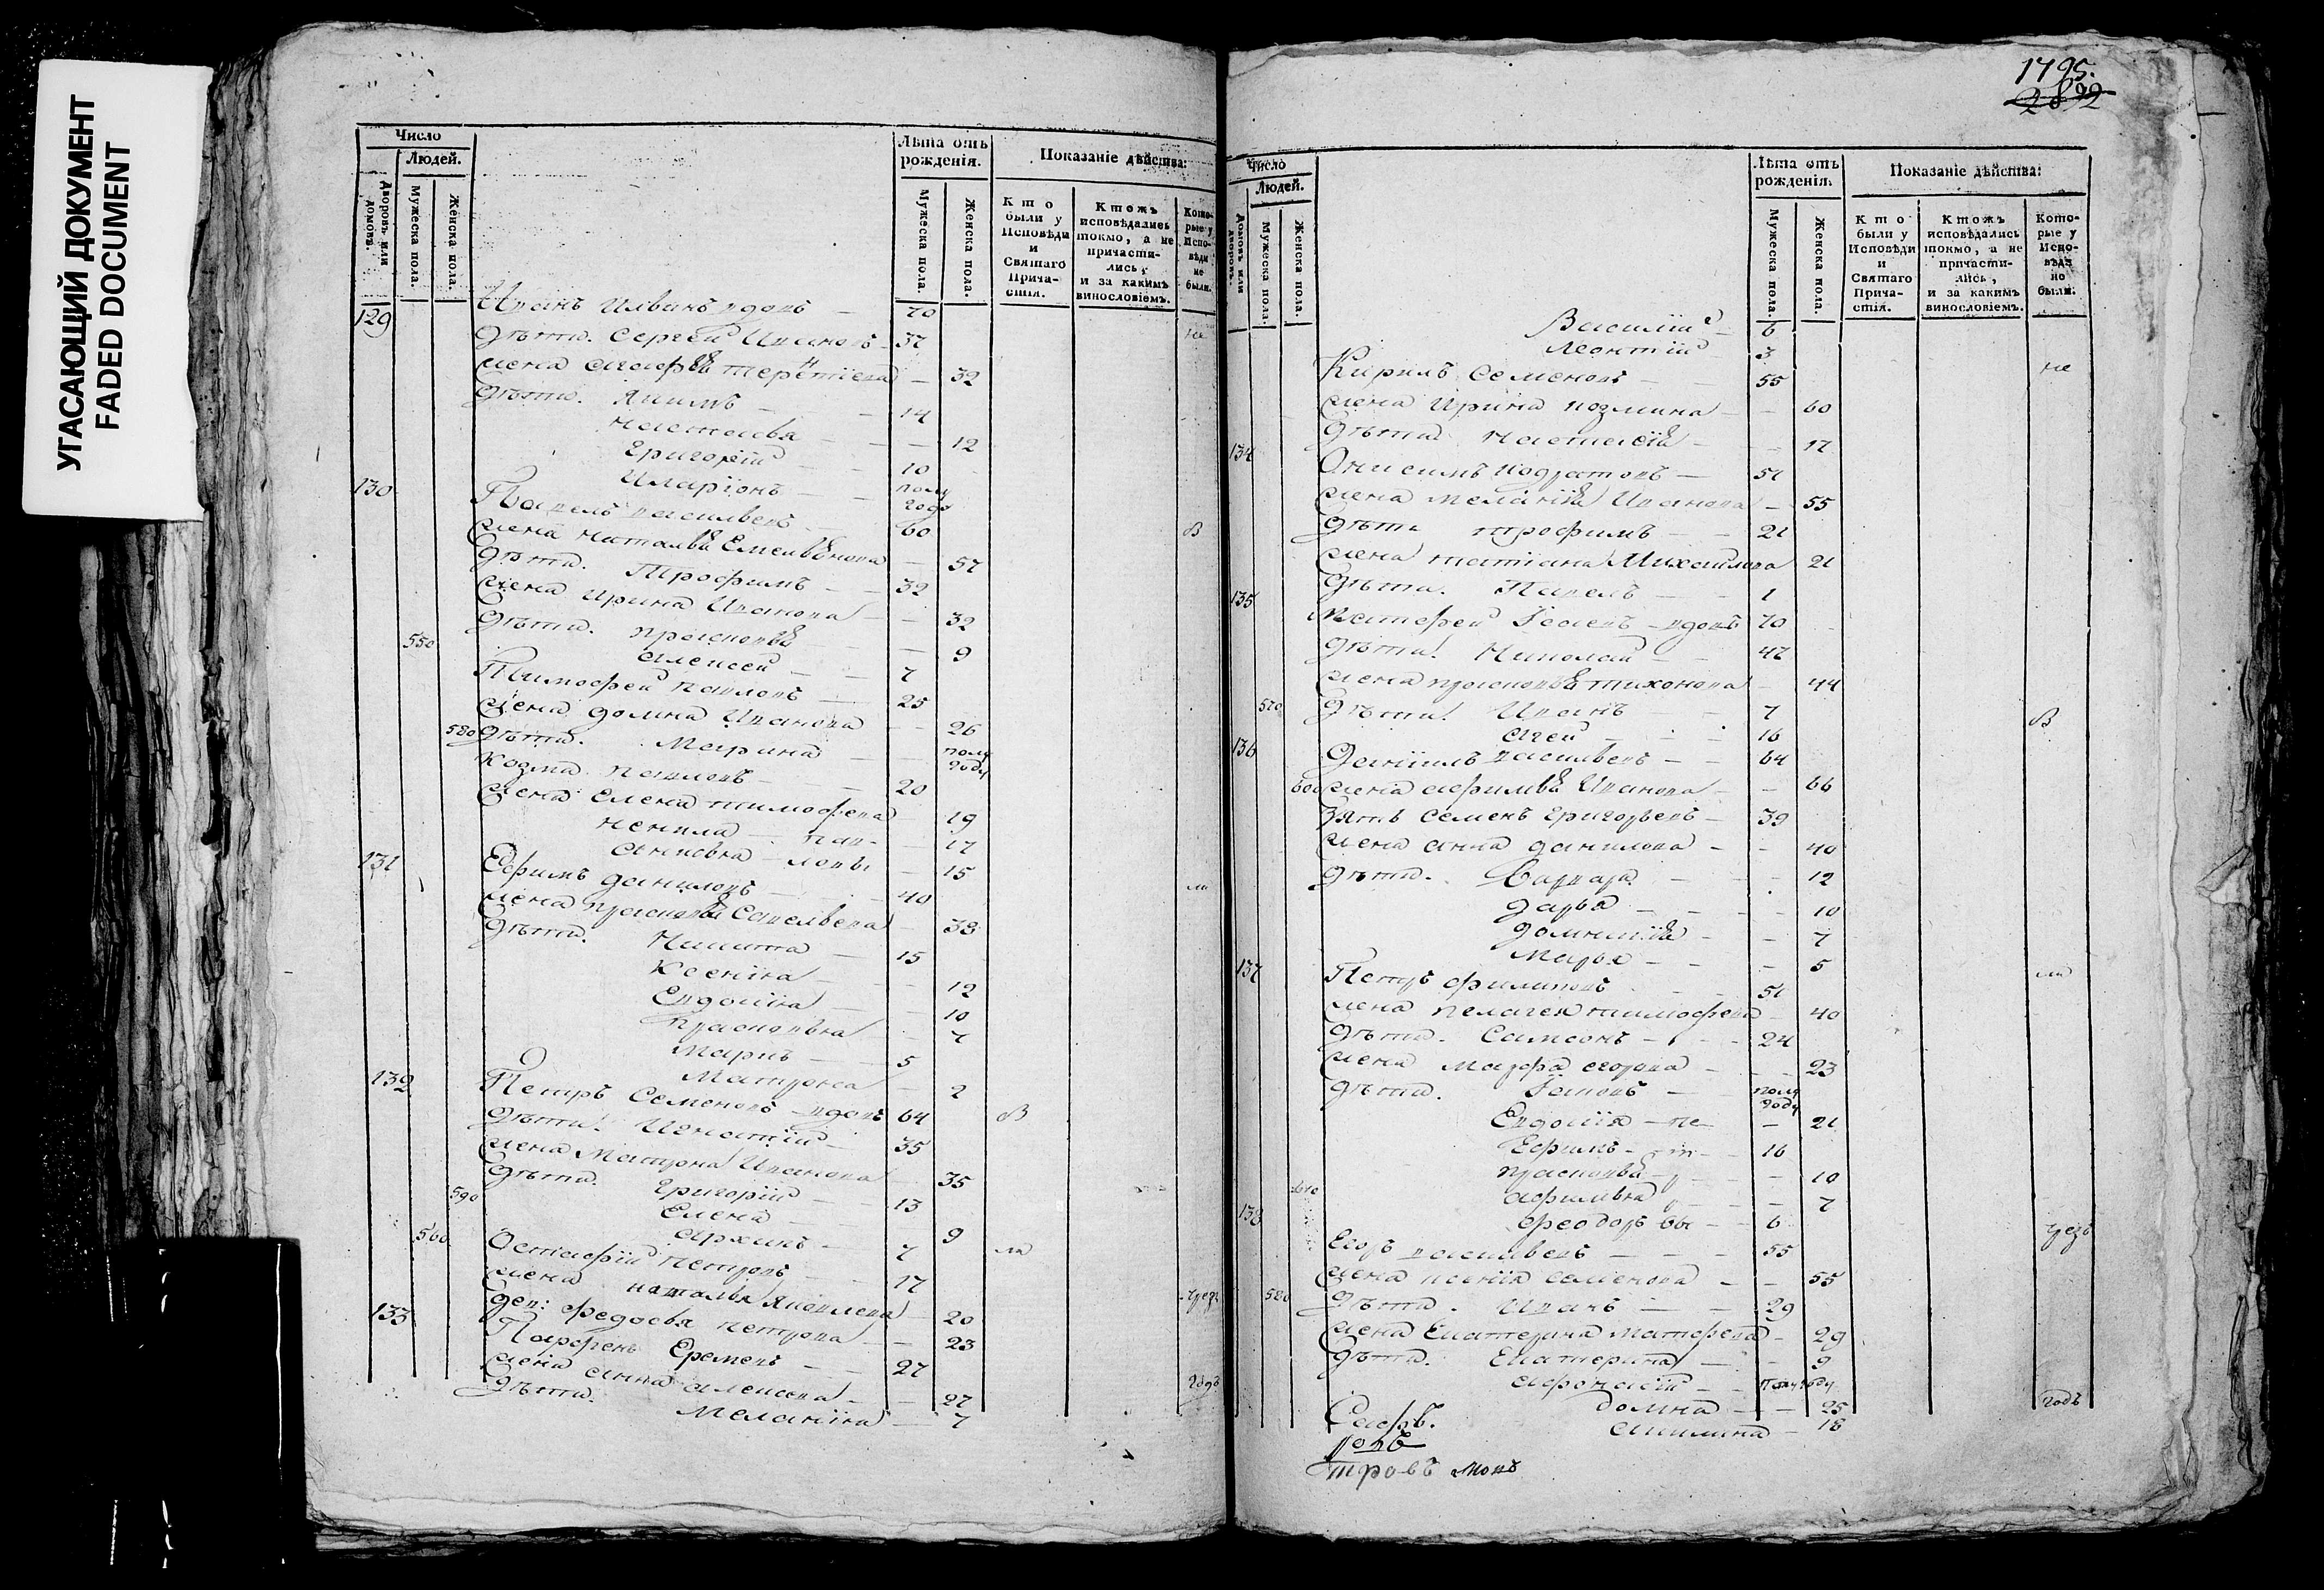 УГАСАЮЩИЙ ДОКУМЕНТ
FADED DOCUMENT
Число
Людей.
Дворовъ или домовъ.
Мужеска пола.
Женска пола.
Лѣта отъ рожденія.
Мужеска пола.
Женска пола.
Показаніе дѣйства:
Кто были у Исповѣди и Святаго Прича-стія.
Ктожъ исповѣдались токмо, а не причасти-лись, и за какимъ винословіемъ.
Кото-рые у Испо-вѣди не были.
129 70
дѣти. Сергей Ивановъ 37 не
жена терентіева 32
дѣти. Якимъ 14
настасья 12
Григорій 10
Иларіонъ полу года
130 Павелъ васильевъ 60 в
жена наталья Емельянова 57
дѣти. Трофимъ 32
жена Ирина Иванова 32
дѣти. прасковья 9
550 алексей 7
Тимофей павловъ 25
жена домна Иванова 26
580 дѣти. Марина полу году
козма павловъ 20
жена Елена тимофева 19
ненила пав- 17
ловы 15
131 Ефимъ даниловъ 40 ли
жена прасковья Савельева 38
дѣти. Никита 15
Ксенія 12
Евдокія 10
прасковья 7
5
Матрона 2
132 Петръ Семеновъ вдовъ 64 в
дѣти. Игнатій 35
жена Матрона Иванова 35
590 дѣти. Григорій 13
Елена 9
560 архипъ 7
Остафій петровъ 17 ли
жена наталья Яковлева 20 чрезъ
дев: федосья петрова 23
133 Парфенъ Еремевъ 27
жена анна алексева 27 годъ
дѣти. Меланія 7
1795.
2892
Число
Людей.
Домовъ или дворовъ.
Мужеска пола.
Женска пола.
Лѣта отъ рожденія.
Мужеска пола.
Женска пола.
Показаніе дѣйства:
Кто были у Исповѣди и Святаго Прича-стія.
Ктожъ исповѣдались токмо, а не причасти-лись, и за какимъ винословіемъ.
Кото-рые у Испо-вѣди не были.
Василій 6
Леонтій 3
Кирилъ Семеновъ 55 не
жена Ирина козмина 60
дѣти настасія 17
134 Онисимъ 51
жена меланія Иванова 55
дѣти трофимъ 21
жена татіана Михайлова 21
дѣти. Павелъ 1
135 Матфей Ісаевъ вдовъ 70
дѣти. Николай 47
жена прасковья тихонова 44
570 дѣти. Иванъ 7 в
агей 16
136 Даніилъ васильевъ 64
600 жена афимья Иванова 66
Зять Семенъ Григорьевъ 39
жена анна данилова 40
дѣти. Варвара 12
дарья 10
домникія 7
Марья 5
137 Петръ филиповъ 51 ли
жена пелагея тимофева 40
дѣти. Самсонъ 24
жена Марфа егорова 23
дѣти. полу году
Евдокія пе 21
Ефимъ т 16
прасковья р 10
610 афимья 7
феодоръ вы 6
138 Егоръ васильевъ 55 чрезъ
жена ксенія семенова 55
580 дѣти. Иванъ 29
жена Екатерина Матфева 29
дѣти. Екатерина 9
афонасій полугоду
домна 25 годъ
акилина 18